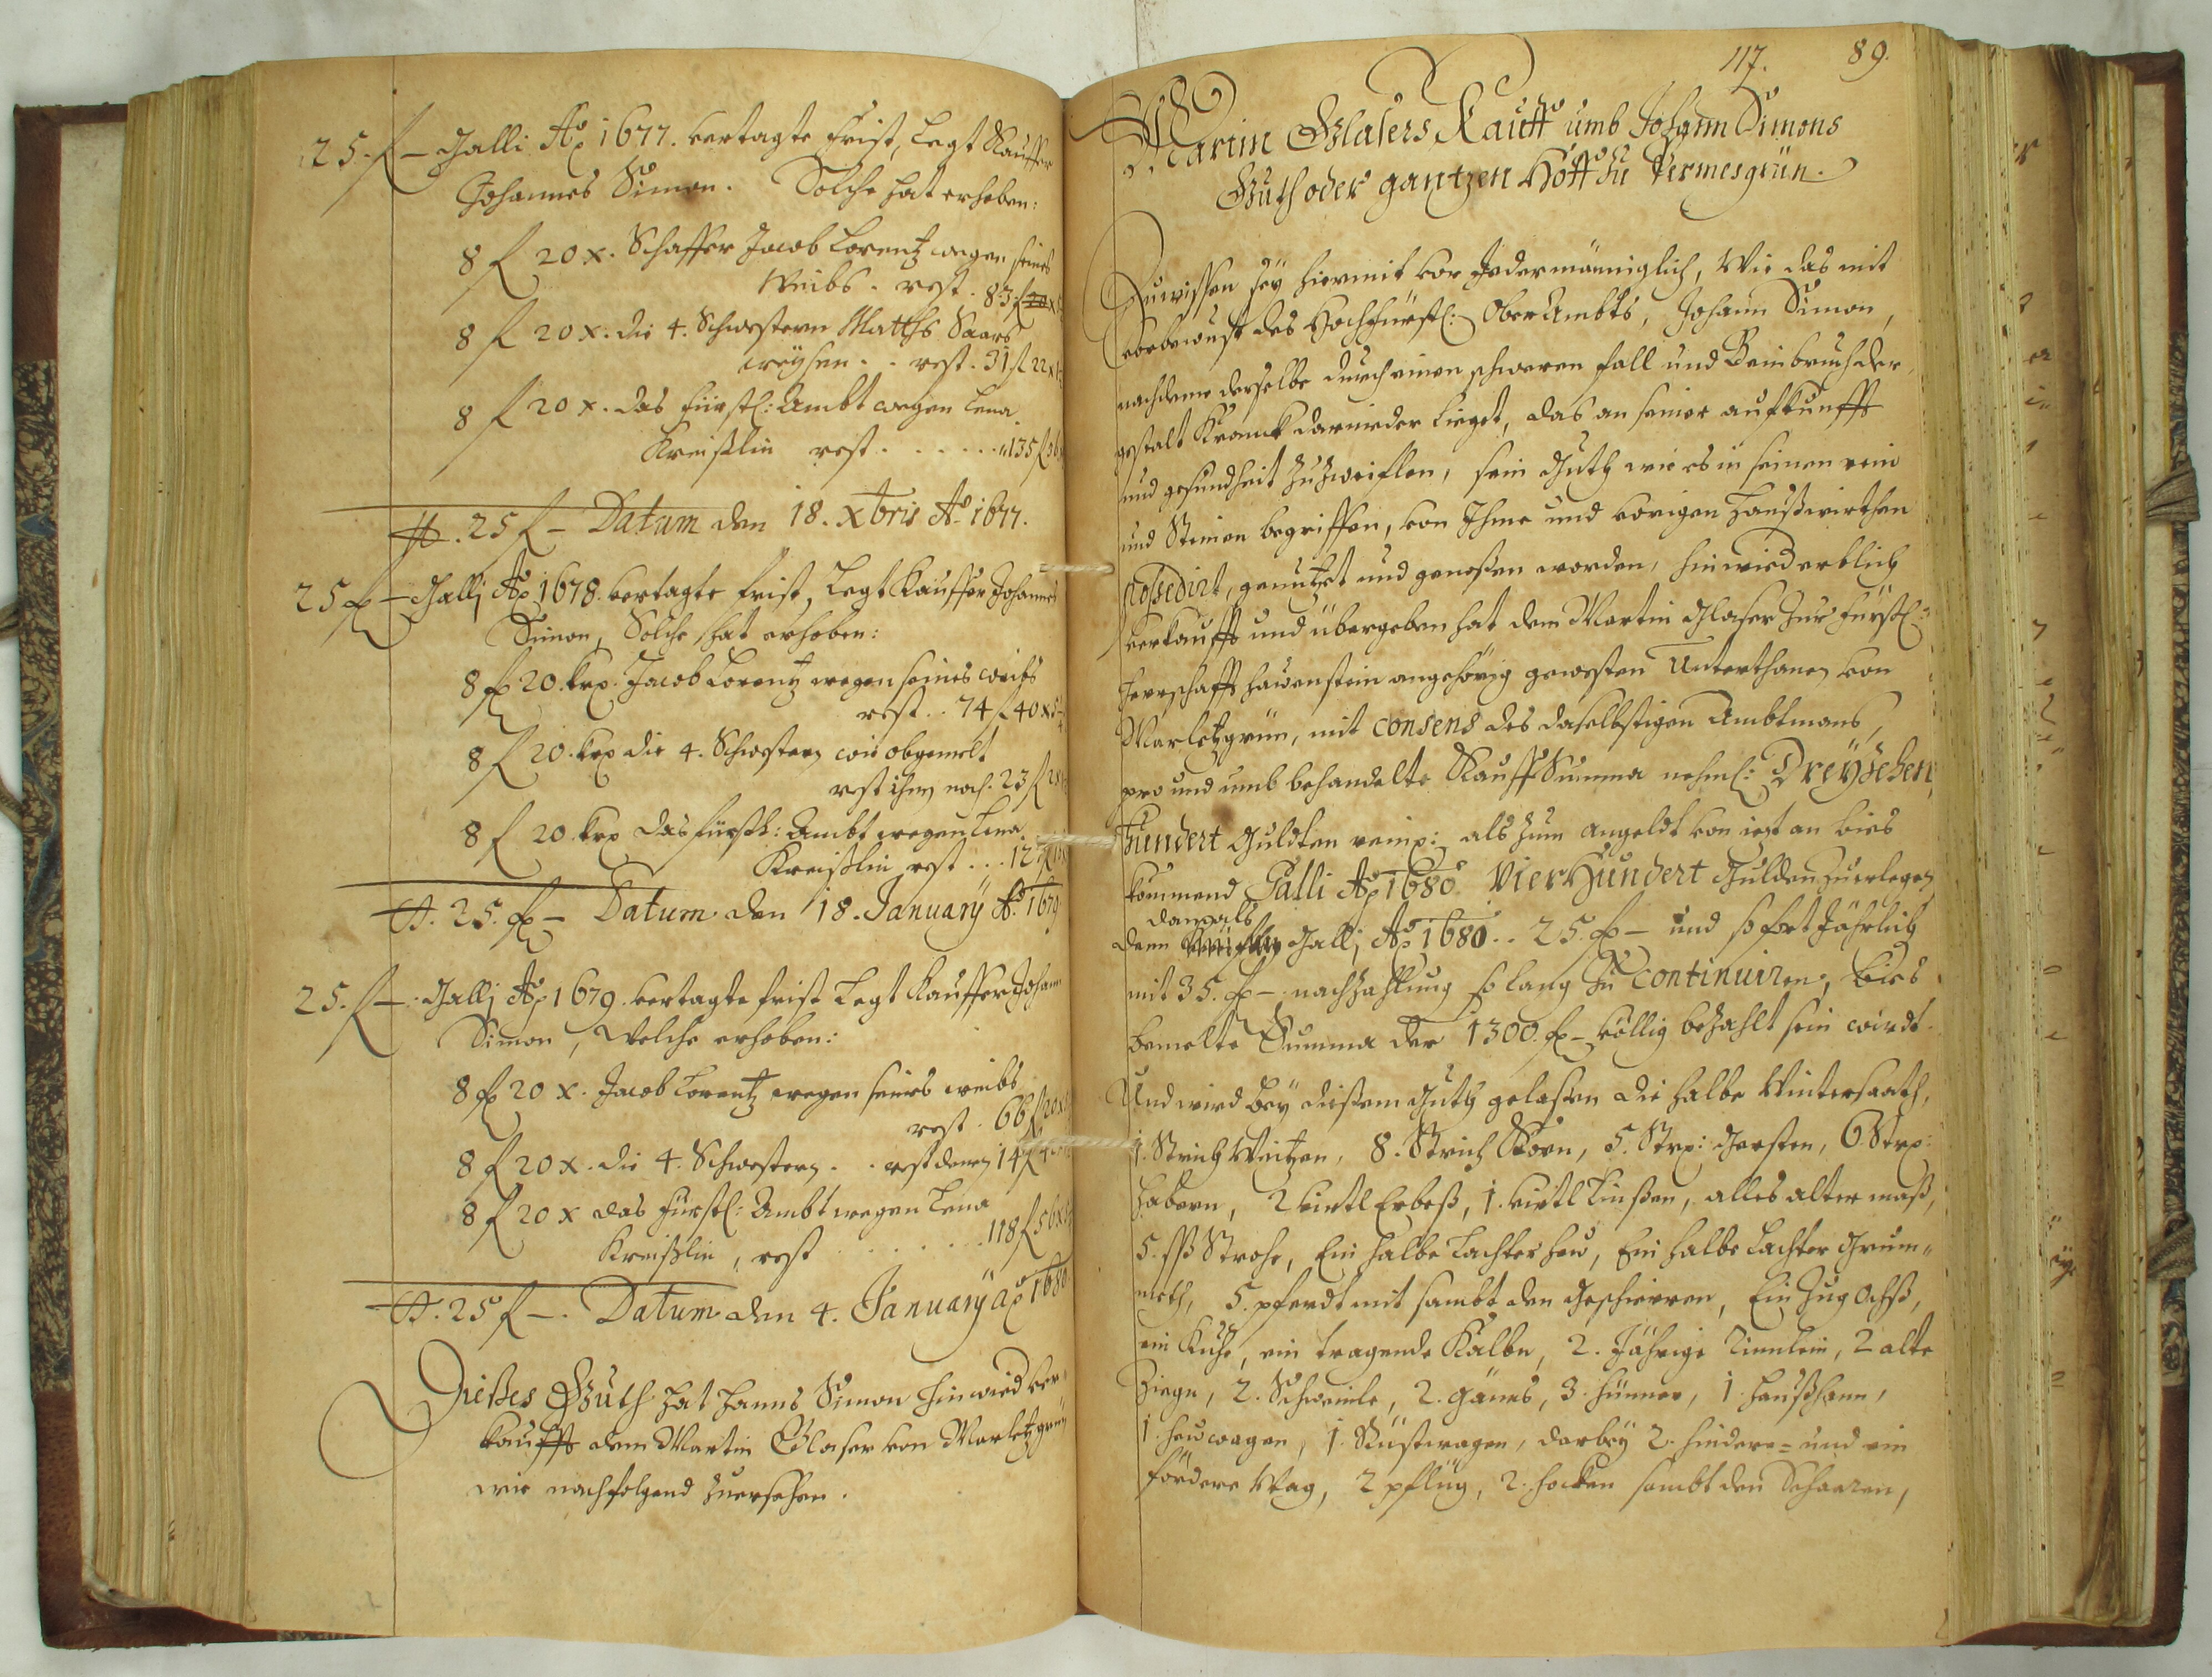 25. f – Galli Aō 1677. vertagte Frist, Legt Kauffer
Johannes Simon. Solche hat erhoben:
8 f 20 x. Schaffer Jacob Lorentz wegen seines
Weibs. rest. 83 f
8 f 20 x. die 4. Schwestern Matths Saars
weysen . . rest. 31 f 22 x
8 f 20 x. das Fürstl: Ambt wegen Lena
Kreißlin rest . . . . . . 135 f 36
. 25 f – Datum den 18. Xbris Aō 1677.
25 f – Gallj Aō 1678. vertagte frist, Legt Kauffer Johannes
Simon, Solche hat erhoben:
8 f 20. krx. Jacob Lorentz wegen seines weibs
rest . . 74 f 40 x
8 f 20. krx die 4. Schwestern wie obgemelt
rest ihnen noch. 23 f
8 f 20 krx das fürstl: Ambt wegen Lena
Kreißlin rest . . . 127 f
. 25. f – Datum den 18. January Aō 1679
25. f – Gallj Aō 1679. vertagte frist Legt Kauffer Johann
Simon, Welche erhoben:
8 f 20 x. Jacob Lorentz wegen seines weibs
rest . 66 f 20 x
8 f 20 x. die 4. Schwestern . . rest denen 14 f
8 f 20 x das Fürstl: Ambt wegen Lena
Kreißlin, rest . . . . . . 118 f 56 x
. 25 f –. Datum den 4. January aō 1680
Dießes Guth hat Hanns Simon hinwied ver-
kaufft dem Martin Glaser von Marletzgrün
wie nachfolgend zuersehen.
117. 89.
Martin Glasers Kauff umb Johann Simons
Guth oder gantzen Hoff zu Permesgrün.
Zuwissen sey hiermit vor Jedermänniglich, Wie das mit
vorbewust des Hochfürstl: OberAmbts, Johann Simon,
nachdeme derselbe durch einen schweren fall und Beinbruch der
gestalt Kranck darnieder lieget, das an seiner aufkunfft
und gesundheit zuzweiflen, sein Guth wie es in seinen rein
und Steinen begriffen, von Ihme und vorigen Haußwirthen
possedirt, genutzet und genoßen worden, hinwied erblich
verkaufft und übergeben hat dem Martin Glaser zur Fürstl:
herrschafft Hauenstein angehörig gewesten Unterthanen von
Marletzgrün, mit consens des daselbstigen Ambtmans,
pro und umb behandelte Kauff Summa nehml: Dreyzehen
Hundert Guldten reinx: als zum angeldt von iezt an bies
kommend Galli Aō 1680 VierHundert Gulden zuerlegen
damals
dann Gallj Aō 1680 . . 25. f – und so fort Jährlich
mit 35. f – nachzahlung so lang zu continuiren, bies
bemelte Summa der 1300. f – völlig bezahlt sein wirdt.
Und wird bey dießem Guth gelaßen die halbe Wintersaath,
1. Strich Weitzen, 8. Strich Korn, 5. Strx: Gersten, 6. Strx:
habern, 2 viertl Erbeß, 1. viertl Linßen, alles alter maß,
5. ßß Strohe, Ein halbe Lachter heu, Ein halbe Lachter Grum-
meth, 5. pferdt mit sambt den Geschirren, Ein Zug Ochß,
ein Kuhe, ein tragende Kalbe, 2. Jährige Rinnlein, 2 alte
Ziegn, 2. Schweinle, 2. Gänns, 3. hünner, 1. haußhann,
1. heuwagen, 1. Rüstwagen, darbey 2. hindere- und ein
fördere Wag, 2 pflüg, 2. hocken sambt den Schaaren,